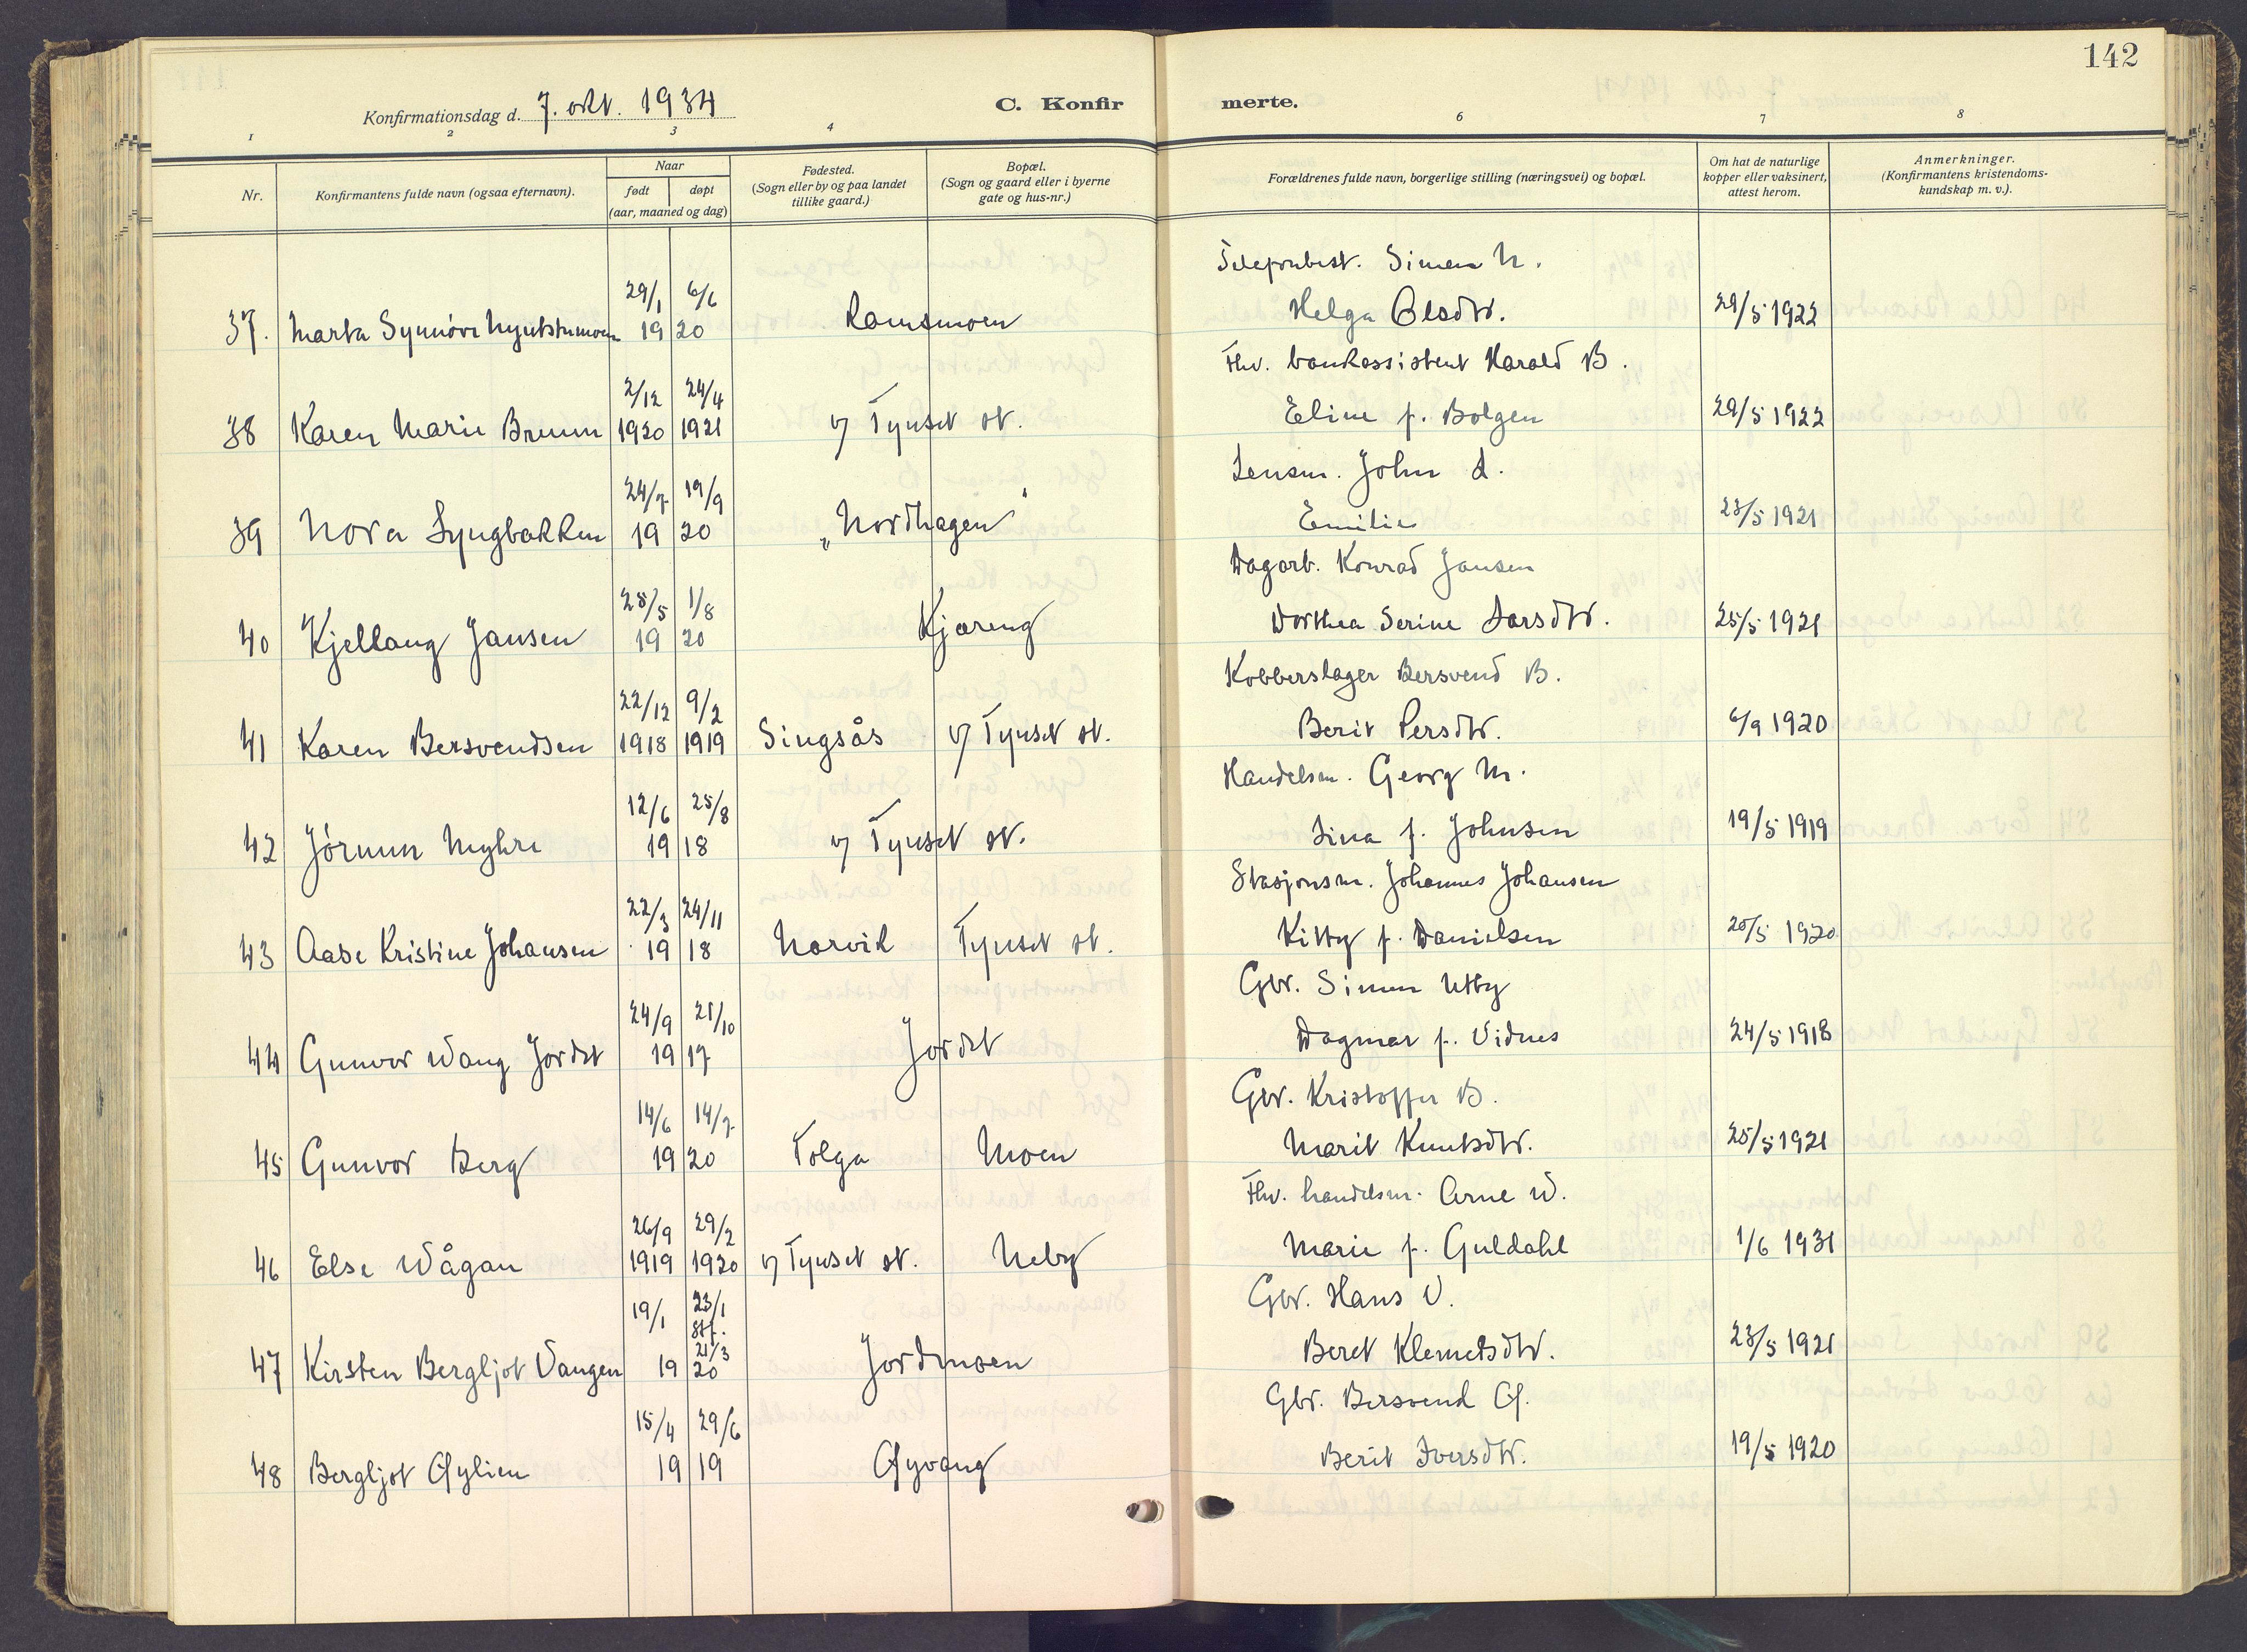 142
Konfirmationsdag d. 7. okt. 1934
C. Konfir merte.
1 2 3 4 6 7 8
Nr.
Konfirmantens fulde navn (ogsaa efternavn).
Naar
født døpt
(aar, maaned og dag)
Fødested.
(Sogn eller by og paa landet
tillike gaard.)
Bopæl.
(Sogn og gaard eller i byerne
gate og hus-nr.)
Forældrenes fulde navn, borgerlige stilling (næringsvei) og bopæl.
Om hat de naturlige
kopper eller vaksinert,
attest herom.
Anmerkninger.
(Konfirmantens kristendoms-
kundskap m. v.).
Simen N.
29/1 6/6
37. Marta Synnöve 19 20 Ramsmoen Helga Olsdtr. 29/5 1922
Fhv. bankassistent Harald B.
2/12 24/4
38 Karen Marie Bruun 1920 1921 v/ Tynset st. Eline f. Bolgen 29/5 1922
Lensm. John L.
24/7 19/9
39 Nora Lyngbakken 19 20 „Nordhagen" Emilie 23/5 1921
Dagarb. Konrad Jansen
25/5 1/8
40 Kjellaug Jansen 19 20 Kjæreng Dorthea Serine Larsdtr. 25/5 1921
Kobberslager Bersvend B.
22/12 9/2
41 Karen Bersvendsen 1918 1919 Singsås v/ Tynset st. Berit Persdtr. 6/9 1920
Handelsm. Georg M.
12/6 25/8
42 Jörunn Myhre 19 18 v/ Tynset st. Lina f. Johnsen 19/5 1919
Stasjonsm. Johannes Johansen
22/3 24/11
43 Aase Kristine Johansen 19 18 Narvik Tynset st. Kitty f. Danielsen 20/5 1920
Gbr. Simen Utby
24/9 21/10
44 Gunvor Wang Jordet 19 17 Jordet Dagmar f. Vidnes 24/5 1918
Gbr. Kristoffer B.
14/6 14/7
45 Gunvor Berg 19 20 Tolga Moen Marit Knutsdtr. 25/5 1921
Fhv. handelsm. Arne W.
26/9 29/2
46 Else Wågan 1919 1920 v/ Tynset st. Neby Marie f. Guldahl 1/6 1931
Gbr. Hans V.
19/1 23/1
Stf.
21/3
47 Kirsten Bergljot Vangen 19 20 Jordmoen Beret Klemetsdtr. 23/5 1921
Gbr. Bersvend G.
15/4 29/6
48 Bergljot Gylien 19 19 Gyvang Berit Iversdtr. 19/5 1920